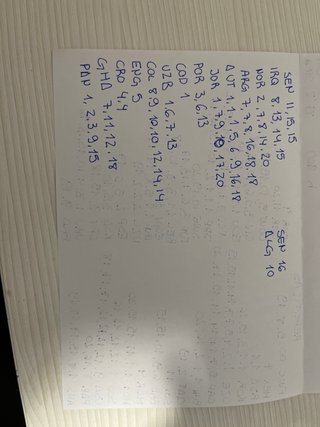 SEN 11, 15, 15
IRQ 8, 13, 14, 15
NOR 2, 7, 8, 14, 20
ARG 7, 7, 8, 16, 18, 18
AUT 1, 1, 1, 5, 6, 9, 16, 18
JOR 1, 7, 9, 10, 17, 20
POR 3, 6, 13
COD 1
UZB 1, 6, 7, 13
COL 8, 9, 10, 10, 12, 14, 14
ENG 5
CRO 4, 4
GHA 7, 11, 12, 18
PAN 1, 2, 3, 9, 15
SEN 16
ALG 10